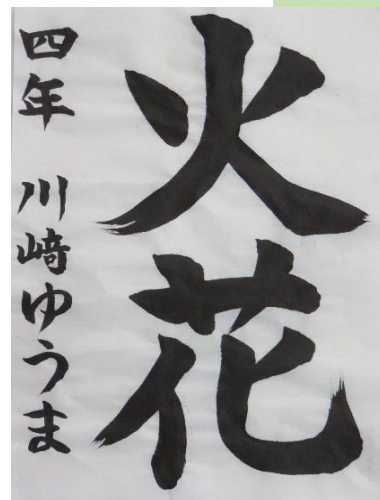 火花
四年 川﨑ゆうま